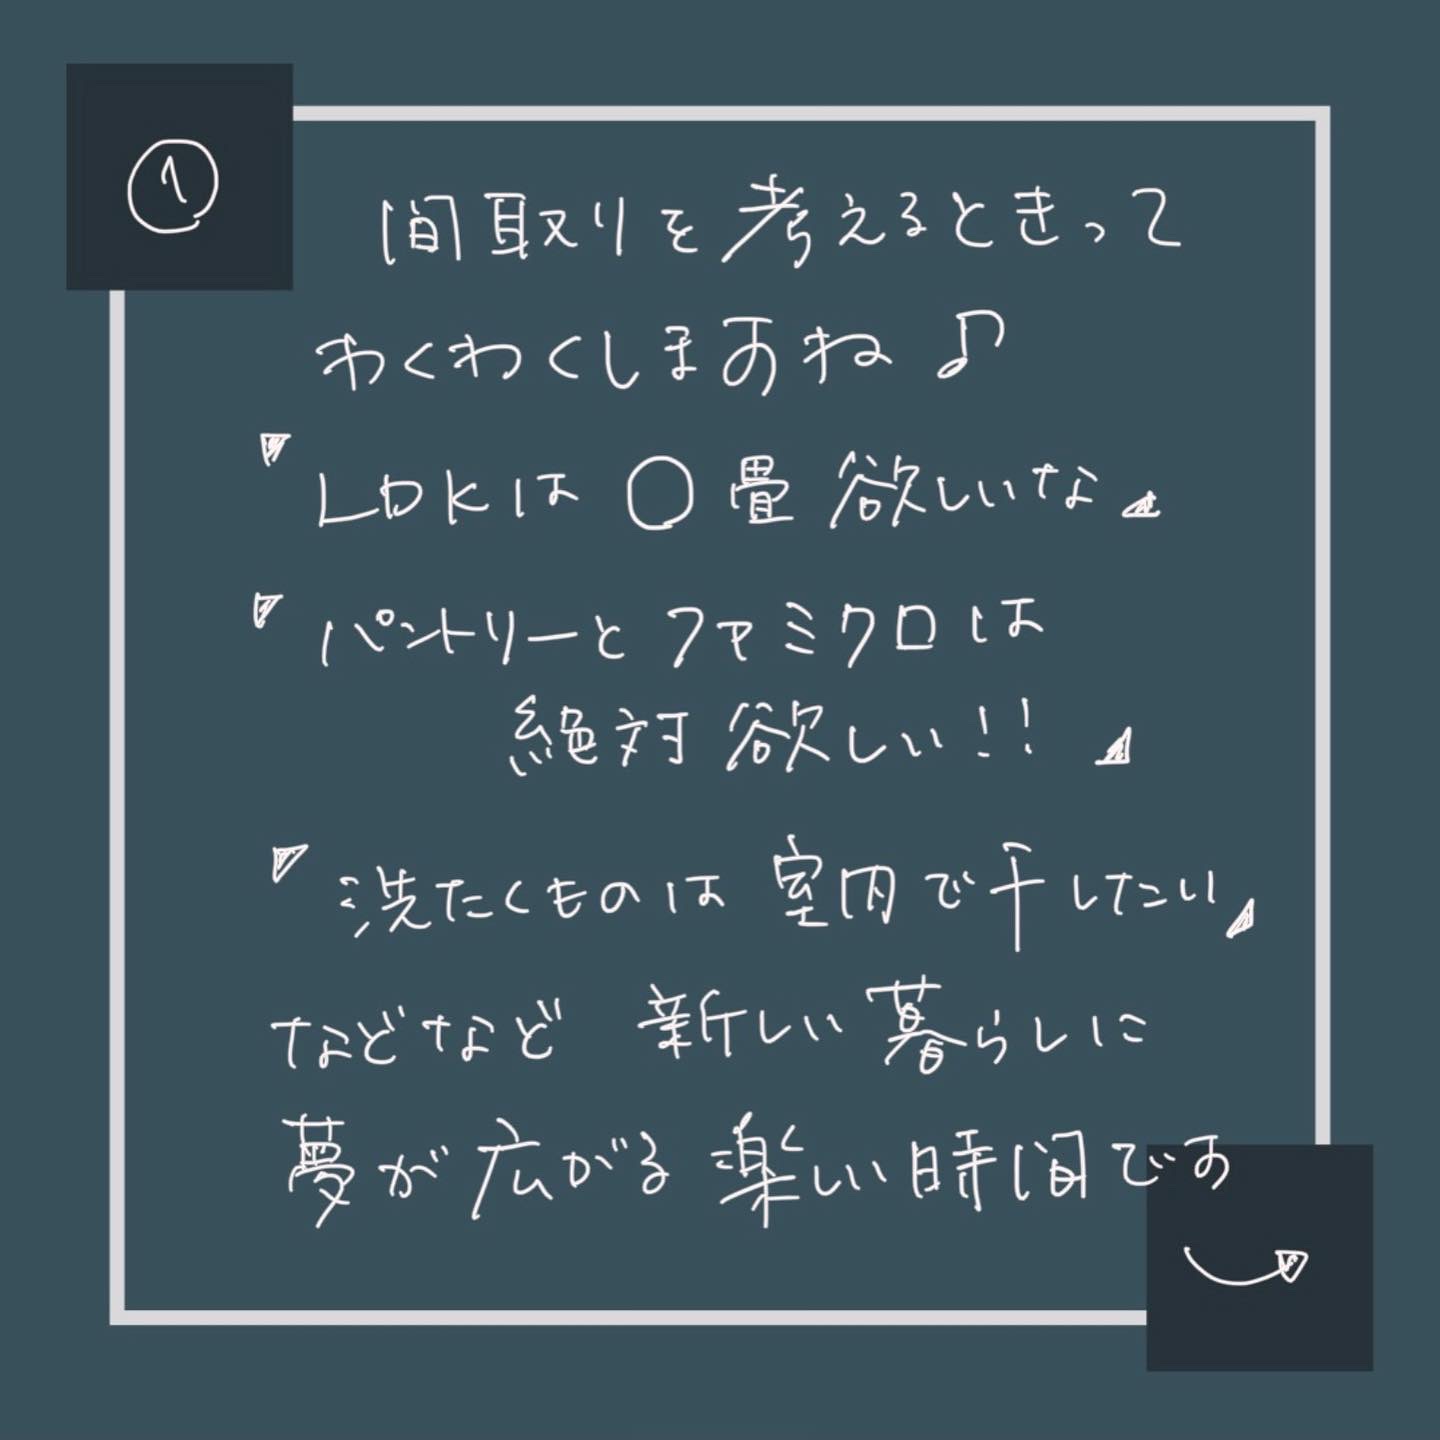 ①
間取りを考えるときって
わくわくしますね♪
"LDKは〇畳欲しいな"
"パントリーとファミクロは
絶対欲しい！！"
"洗たくものは室内で干したい"
などなど 新しい暮らしに
夢が広がる楽しい時間です